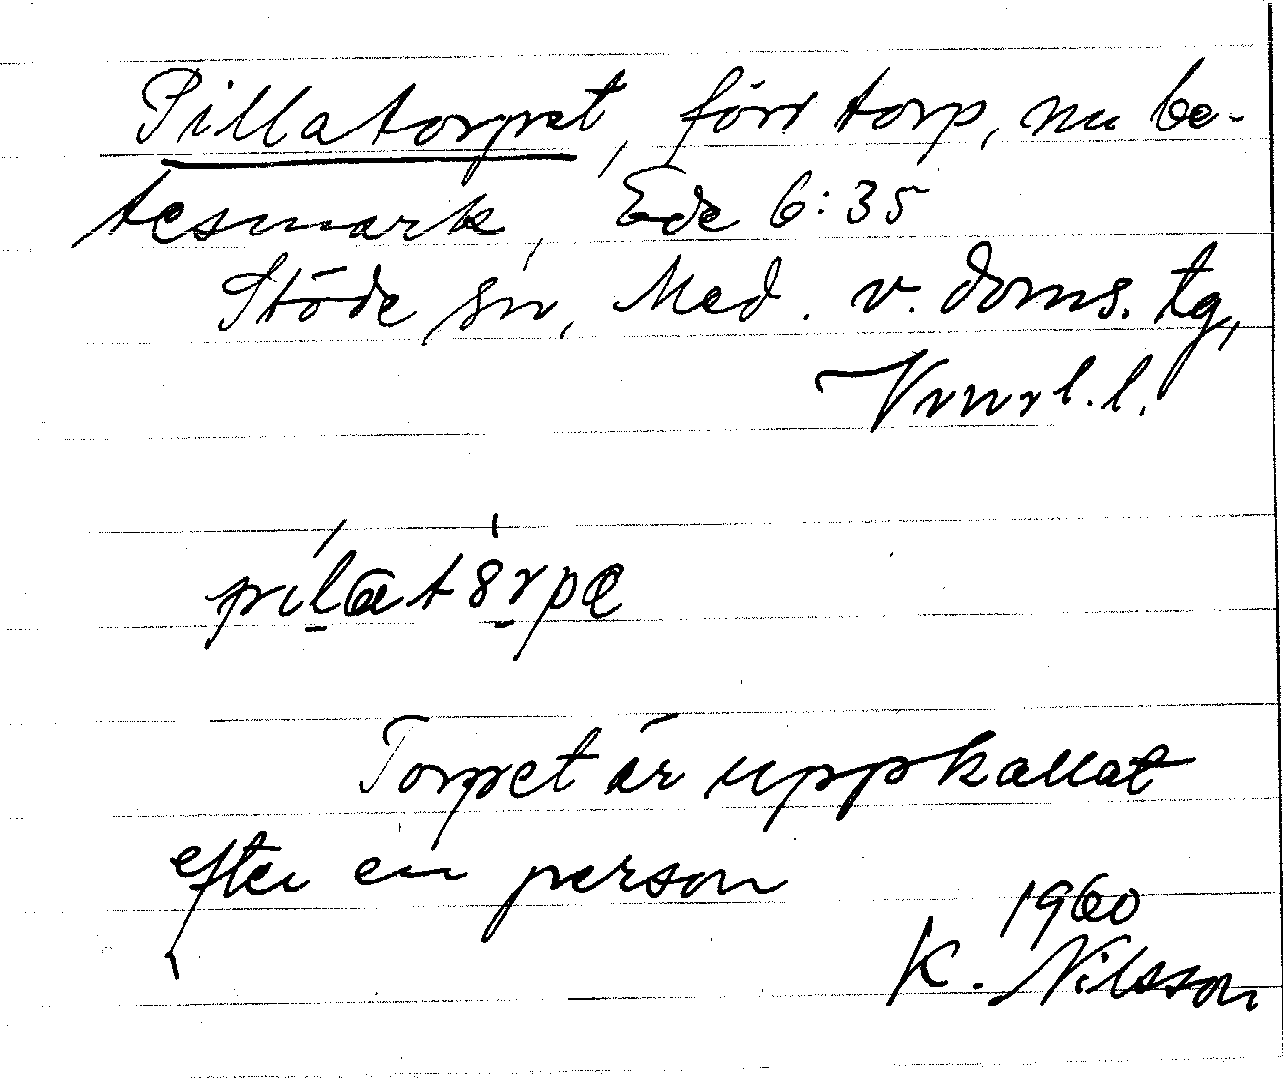 Pillatorpet, förr torp, nu be-
tesmark, Ede 6:35
Stöde sn, Med. v. doms. tg,
Vnrl. l.
Torpet är uppkallat
efter en person
1960
K. Nilsson